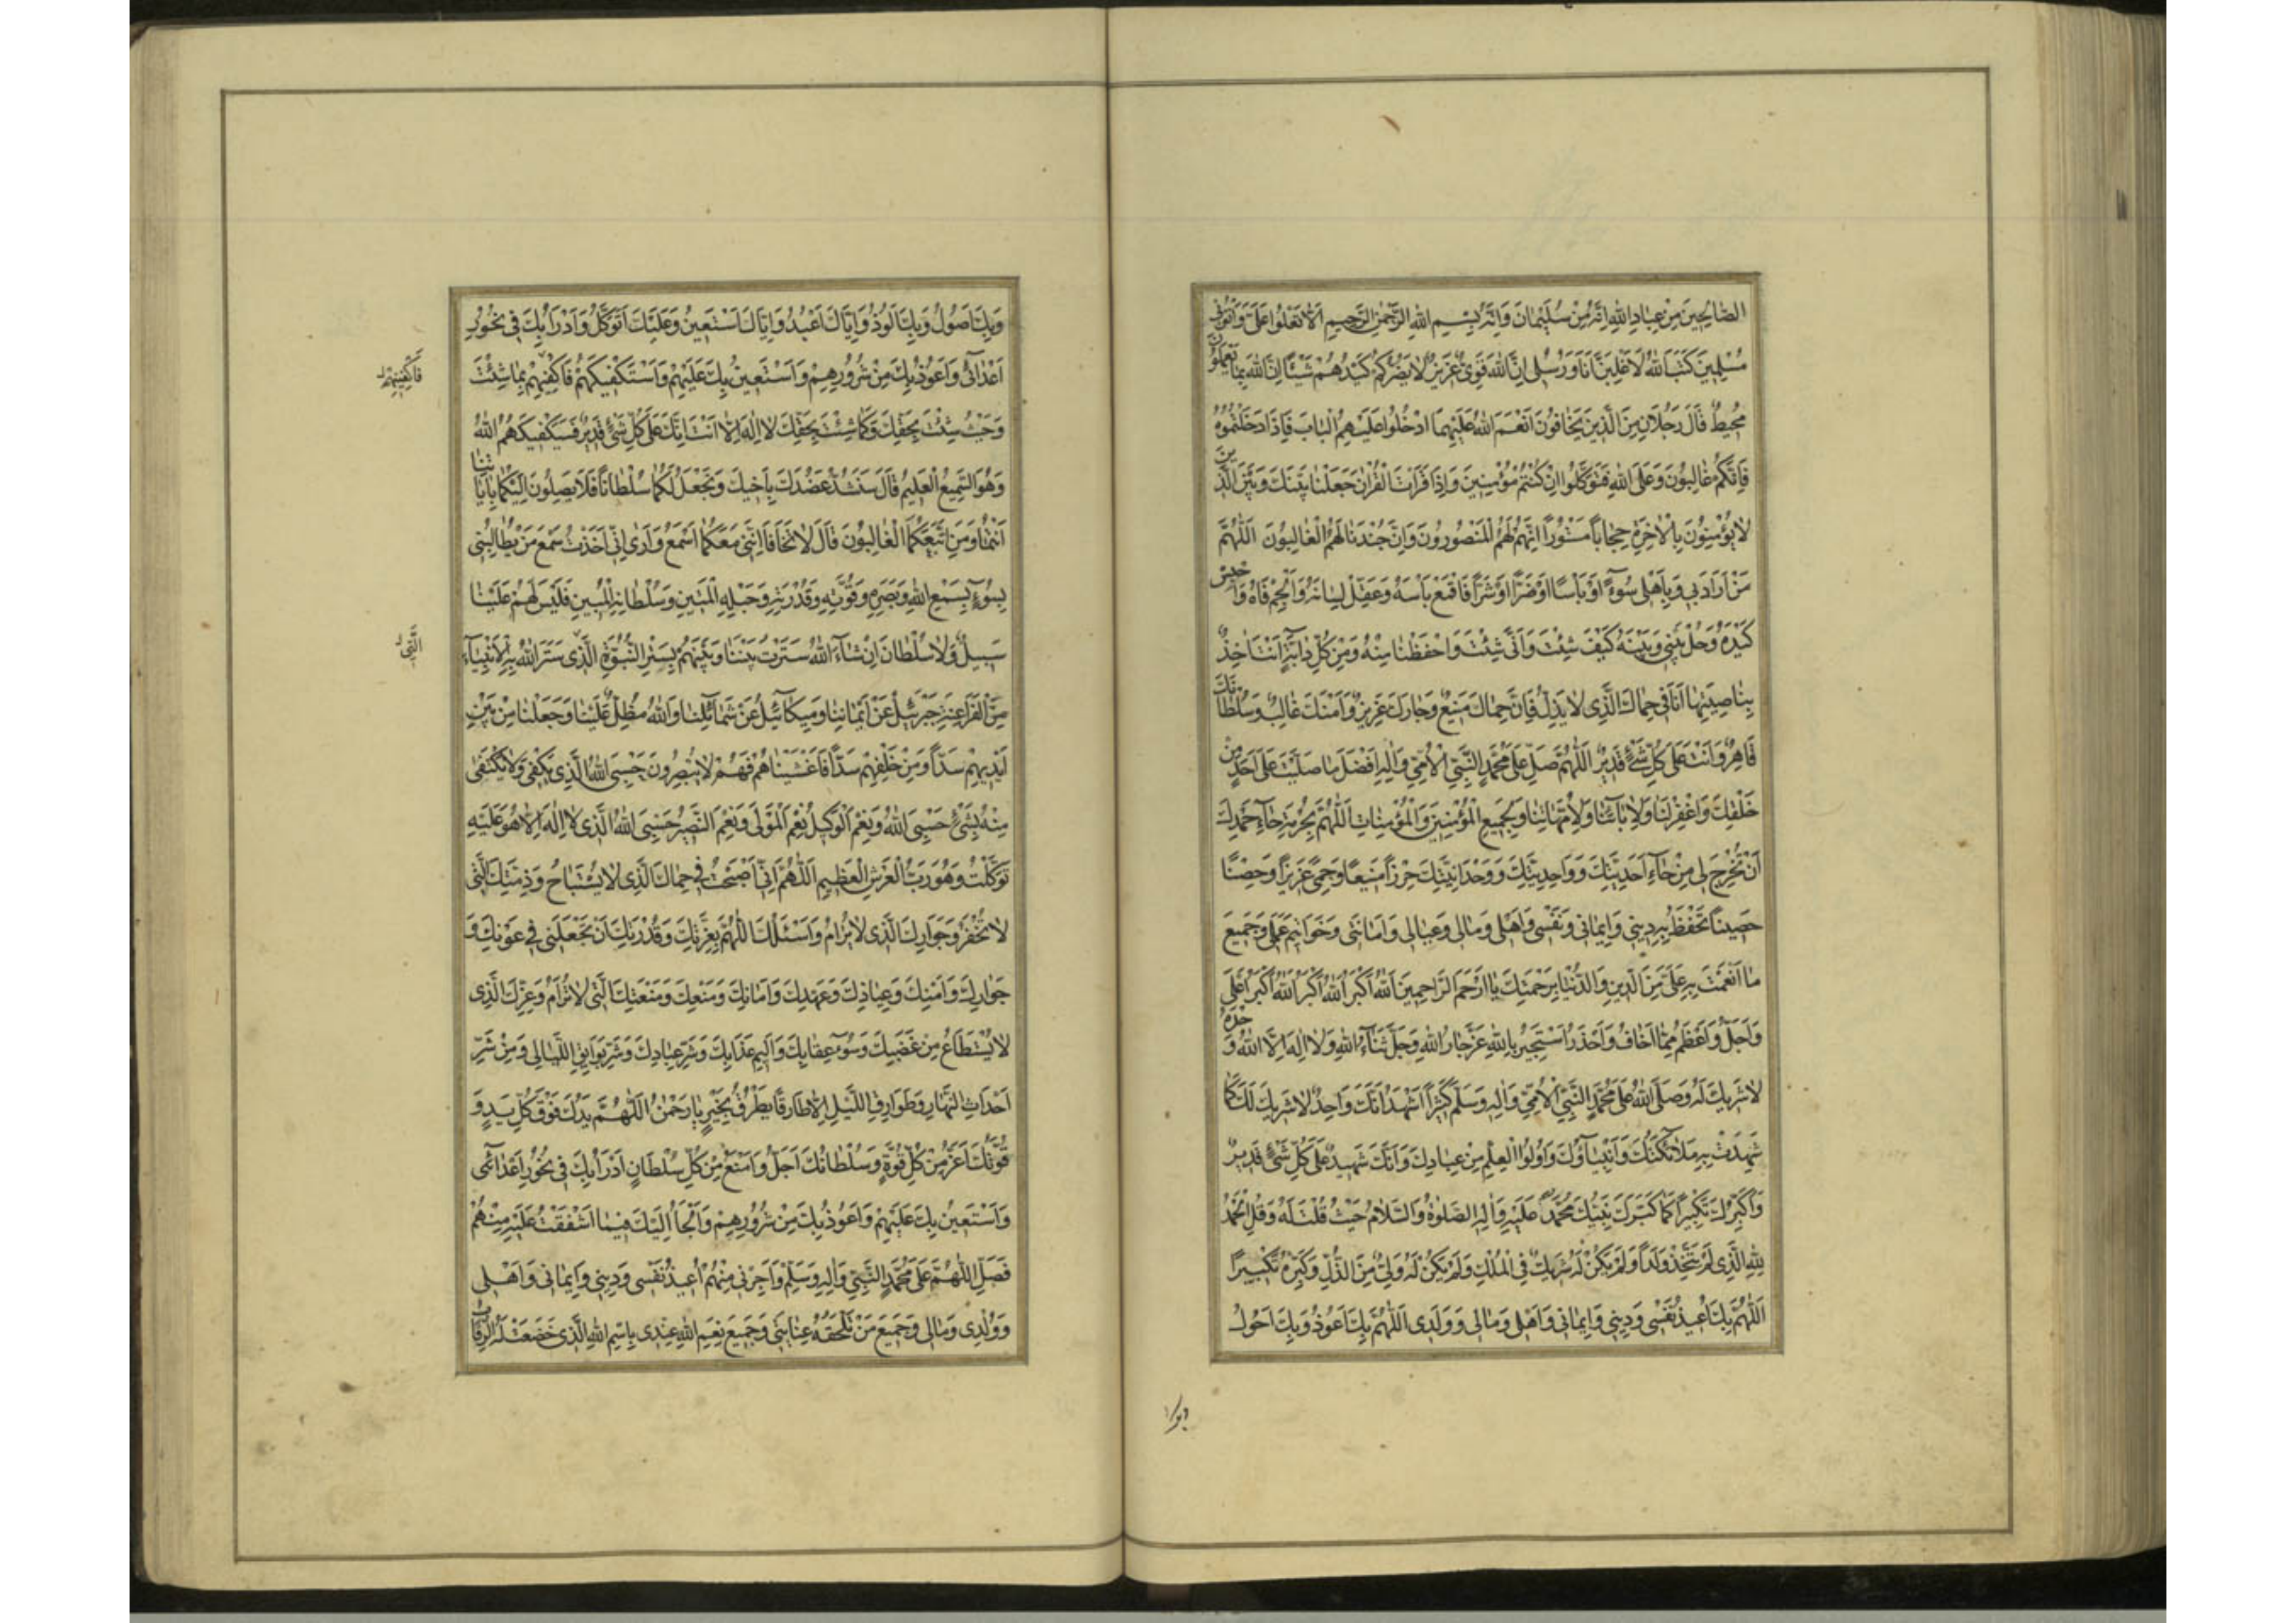 الصّٰالِحینَ مِنْ عِبٰادِ اللهِ اِنَّهُ مِنْ سُلَیْمٰانَ وَاِنَّهُ بِسْمِ اللهِ الرَّحْمٰنِ الرَّحیمِ اَلّٰا تَعْلُوا عَلَیَّ وَاْتُونی
مُسْلِمینَ کَتَبَ اللهُ لَاَغْلِبَنَّ اَنَا وَرُسُلی اِنَّ اللهَ قَوِیٌّ عَزیزٌ لٰا یَضُرُّکُمْ کَیْدُهُمْ شَیْئًا اِنَّ اللهَ بِمٰا یَعْمَلُونَ
مُحیطٌ قٰالَ رَجُلٰانِ مِنَ الَّذینَ یَخٰافُونَ اَنْعَمَ اللهُ عَلَیْهِمَا ادْخُلُوا عَلَیْهِمُ الْبٰابَ فَاِذٰا دَخَلْتُمُوهُ
فَاِنَّکُمْ غٰالِبُونَ وَعَلَی اللهِ فَتَوَکَّلُوا اِنْ کُنْتُمْ مُؤْمِنینَ وَاِذٰا قَرَاْتَ الْقُرْاٰنَ جَعَلْنٰا بَیْنَکَ وَبَیْنَ الَّذینَ
لٰا یُؤْمِنُونَ بِالْاٰخِرَةِ حِجٰاباً مَسْتُوراً اِنَّهُمْ لَهُمُ الْمَنْصُورُونَ وَاِنَّ جُنْدَنٰا لَهُمُ الْغٰالِبُونَ اَللّٰهُمَّ
مَنْ اَرٰادَ بی وَبِاَهْلی سُوءً اَوْ بَاْسًا اَوْ ضَرًّا اَوْ شَرًّا فَاقْمَعْ بَاْسَهُ وَعَقِّلْ لِسٰانَهُ وَاَلْجِمْ فٰاهُ وَاحْبِسْ
کَیْدَهُ وَحُلْ بَیْنی وَبَیْنَهُ کَیْفَ شِئْتَ وَاَنّٰی شِئْتَ وَاحْفَظْنٰا مِنْهُ وَمِنْ کُلِّ دٰابَّةٍ اَنْتَ اٰخِذٌ
بِنٰاصِیَتِهٰا اَنَا فی حِمٰاکَ الَّذی لٰا یَذِلُّ فَاِنَّ حِمٰاکَ مَنیعٌ وَجٰارَکَ عَزیزٌ وَاَمْنَکَ غٰالِبٌ وَسُلْطٰانَکَ
قٰاهِرٌ وَاَنْتَ عَلیٰ کُلِّ شَیْءٍ قَدیرٌ اَللّٰهُمَّ صَلِّ عَلیٰ مُحَمَّدٍ النَّبِیِّ الْاُمِّیِّ وَاٰلِهِ اَفْضَلَ مٰا صَلَّیْتَ عَلیٰ اَحَدٍ مِنْ
خَلْقِکَ وَاغْفِرْ لَنٰا وَلِاٰبٰائِنٰا وَلِاُمَّهٰاتِنٰا وَلِجَمیعِ الْمُؤْمِنینَ وَالْمُؤْمِنٰاتِ اَللّٰهُمَّ بِحُرْمَةِ حٰاءِ حَمْدِکَ
اَنْ تُخْرِجَ لی مِنْ حٰاءِ اَحَدِیَّتِکَ وَوٰاحِدِیَّتِکَ وَوَحْدٰانِیَّتِکَ حِرْزاً مَنیعًا وَحِمیً عَزیزًا وَحِصْنًا
حَصینًا تَحْفَظُ بِهِ دینی وَایمٰانی وَنَفْسی وَاَهْلی وَمٰالی وَعِیٰالی وَاَمٰانَتی وَخَوٰاتیمَ عَمَلی وَجَمیعَ
مٰا اَنْعَمْتَ بِهِ عَلَیَّ مِنَ الدّینِ وَالدُّنْیٰا بِرَحْمَتِکَ یٰا اَرْحَمَ الرّٰاحِمینَ اَللهُ اَکْبَرُ اَللهُ اَکْبَرُ اَللهُ اَکْبَرُ اَعْلیٰ
وَاَجَلُّ وَاَعْظَمُ مِمّٰا اَخٰافُ وَاَحْذَرُ اَسْتَجیرُ بِاللهِ عَزَّ جٰارُ اللهِ وَجَلَّ ثَنٰاءُ اللهِ وَلٰا اِلٰهَ اِلَّا اللهُ وَحْدَهُ
لٰا شَریکَ لَهُ وَصَلَّی اللهُ عَلیٰ مُحَمَّدٍ النَّبِیِّ الْاُمِّیِّ وَاٰلِهِ وَسَلَّمَ کَثیراً اَشْهَدُ اَنَّکَ وٰاحِدٌ لٰا شَریکَ لَکَ کَمٰا
شَهِدَتْ بِهِ مَلٰائِکَتُکَ وَاَنْبِیٰاؤُکَ وَاُولُوا الْعِلْمِ مِنْ عِبٰادِکَ وَاَنَّکَ شَهیدٌ عَلیٰ کُلِّ شَیْءٍ قَدیرٌ
وَاُکَبِّرُکَ تَکْبیراً کَمٰا کَبَّرَکَ نَبِیُّکَ مُحَمَّدٌ عَلَیْهِ وَاٰلِهِ الصَّلوٰةُ وَالسَّلٰامُ حَیْثُ قُلْتَ لَهُ وَقُلِ الْحَمْدُ
لِلّٰهِ الَّذی لَمْ یَتَّخِذْ وَلَداً وَلَمْ یَکُنْ لَهُ شَریکٌ فِی الْمُلْکِ وَلَمْ یَکُنْ لَهُ وَلِیٌّ مِنَ الذُّلِّ وَکَبِّرْهُ تَکْبیرًا
اَللّٰهُمَّ بِکَ اُعیذُ نَفْسی وَدینی وَایمٰانی وَاَهْلی وَمٰالی وَوَلَدی اَللّٰهُمَّ بِکَ اَعُوذُ وَبِکَ اَحُولُ
وَبِکَ اَصُولُ وَبِکَ اَلُوذُ وَاِیّٰاکَ اَعْبُدُ وَاِیّٰاکَ اَسْتَعینُ وَعَلَیْکَ اَتَوَکَّلُ وَاَدْرَاُ بِکَ فی نُحُورِ
اَعْدٰائی وَاَعُوذُ بِکَ مِنْ شُرُورِهِمْ وَاَسْتَعینُ بِکَ عَلَیْهِمْ وَاَسْتَکْفیکَهُمْ فَاکْفِیْهِمْ بِمٰا شِئْتَ
فَاکْفِنیهِمْ
وَحَیْثُ شِئْتَ بِحَقِّکَ وَکَمٰا شِئْتَ بِحَقِّکَ لٰا اِلٰهَ اِلّٰا اَنْتَ اِنَّکَ عَلیٰ کُلِّ شَیْءٍ قَدیرٌ فَسَیَکْفیکَهُمُ اللهُ
وَهُوَ السَّمیعُ الْعَلیمُ قٰالَ سَنَشُدُّ عَضُدَکَ بِاَخیکَ وَنَجْعَلُ لَکُمٰا سُلْطٰاناً فَلٰا یَصِلُونَ اِلَیْکُمٰا بِاٰیٰاتِنٰا
اَنْتُمٰا وَمَنِ اتَّبَعَکُمَا الْغٰالِبُونَ قٰالَ لٰا تَخٰافٰا اِنَّنی مَعَکُمٰا اَسْمَعُ وَاَریٰ اِنّی اَخَذْتُ سَمْعَ مَنْ یُطٰالِبُنی
بِسُوءٍ بِسَمْعِ اللهِ وَبَصَرِهِ وَقُوَّتِهِ وَقُدْرَتِهِ وَحَبْلِهِ الْمَتینِ وَسُلْطٰانِهِ الْمُبینِ فَلَیْسَ لَهُمْ عَلَیْنٰا
سَبیلٌ وَلٰا سُلْطٰانٌ اِنْ شٰاءَ اللهُ سَتَرْتُ بَیْنَنٰا وَبَیْنَهُمْ بِسِتْرِ النُّبُوَّةِ الَّذی سَتَرَ اللهُ بِهِ الْاَنْبِیٰاءَ
الَّتی
مِنَ الْفَرٰاعِنَةِ جَبْرَئیلُ عَنْ اَیْمٰانِنٰا وَمیکٰائیلُ عَنْ شَمٰائِلِنٰا وَاللهُ مُظِلٌّ عَلَیْنٰا وَجَعَلْنٰا مِنْ بَیْنِ
اَیْدیهِمْ سَدّاً وَمِنْ خَلْفِهِمْ سَدّاً فَاَغْشَیْنٰاهُمْ فَهُمْ لٰا یُبْصِرُونَ حَسْبِیَ اللهُ الَّذی یَکْفی وَلٰا یُکْتَفیٰ
مِنْهُ بِشَیْءٍ حَسْبِیَ اللهُ وَنِعْمَ الْوَکیلُ نِعْمَ الْمَوْلیٰ وَنِعْمَ النَّصیرُ حَسْبِیَ اللهُ الَّذی لٰا اِلٰهَ اِلّٰا هُوَ عَلَیْهِ
تَوَکَّلْتُ وَهُوَ رَبُّ الْعَرْشِ الْعَظیمِ اَللّٰهُمَّ اِنّی اَصْبَحْتُ فی حِمٰاکَ الَّذی لٰا یُسْتَبٰاحُ وَذِمَّتِکَ الَّتی
لٰا تُخْفَرُ وَجِوٰارِکَ الَّذی لٰا یُرٰامُ وَاَسْئَلُکَ اللّٰهُمَّ بِعِزَّتِکَ وَقُدْرَتِکَ اَنْ تَجْعَلَنی فی عَوْنِکَ وَ
جِوٰارِکَ وَاَمْنِکَ وَعِیٰاذِکَ وَعَهْدِکَ وَاَمٰانِکَ وَمَنْعِکَ وَمَنَعَتِکَ الَّتی لٰا تُرٰامُ وَعِزِّکَ الَّذی
لٰا یُسْتَطٰاعُ مِنْ غَضَبِکَ وَسُوءِ عِقٰابِکَ وَاَلیمِ عَذٰابِکَ وَشَرِّ عِبٰادِکَ وَشَرِّ بَوٰایِقِ اللَّیٰالی وَمِنْ شَرِّ
اَحْدٰاثِ النَّهٰارِ وَطَوٰارِقِ اللَّیْلِ اِلّٰا طٰارِقًا یَطْرُقُ بِخَیْرٍ یٰا رَحْمٰنُ اَللّٰهُمَّ یَدُکَ فَوْقَ کُلِّ یَدٍ وَ
قُوَّتُکَ اَعَزُّ مِنْ کُلِّ قُوَّةٍ وَسُلْطٰانُکَ اَجَلُّ وَاَمْنَعُ مِنْ کُلِّ سُلْطٰانٍ اَدْرَاُ بِکَ فی نُحُورِ اَعْدٰائی
وَاَسْتَعینُ بِکَ عَلَیْهِمْ وَاَعُوذُ بِکَ مِنْ شُرُورِهِمْ وَاَلْجَاُ اِلَیْکَ فیمٰا اَشْفَقْتُ عَلَیْهِ مِنْهُمْ
فَصَلِّ اللّٰهُمَّ عَلیٰ مُحَمَّدٍ النَّبِیِّ وَاٰلِهِ وَسَلِّمْ وَاَجِرْنی مِنْهُمْ اُعیذُ نَفْسی وَدینی وَایمٰانی وَاَهْلی
وَوُلْدی وَمٰالی وَجَمیعَ مَنْ تَلْحَقُهُ عِنٰایَتی وَجَمیعَ نِعَمِ اللهِ عِنْدی بِاسْمِ اللهِ الَّذی خَضَعَتْ لَهُ الرِّقٰابُ